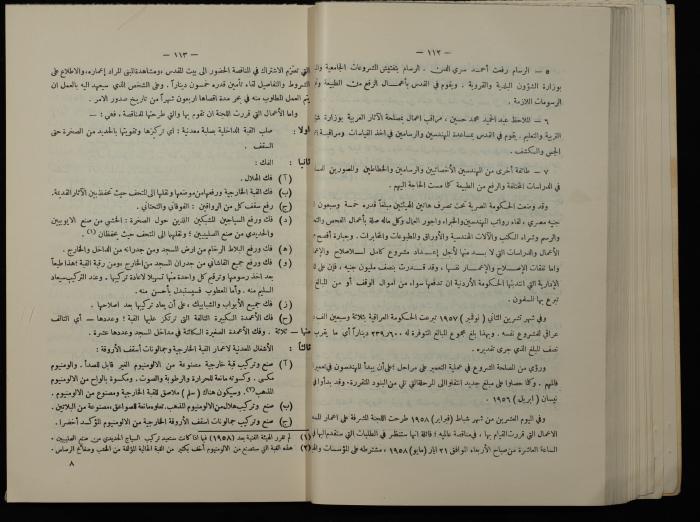 — ١١٢ —
٥ — الرسام رفعت أحمد سري الدين. الرسام بتفتيش المشروعات الجامعية
بوزارة الشؤون البلدية والقروية . ويقوم في القدس بأعمال الرفع من الطبيعة
الرسومات اللازمة .
٦ — الملاحظ عبد الحميد محمد حسين . مراقب أعمال بمصلحة الآثار العربية بوزارة
التربية والتعليم . يقوم في القدس بمساعدة المهندسين والرسامين في اخذ القياسات ومراقبة
الجس والكشف .
٧ — طائفة أخرى من المهندسين الأخصائيين والرسامين والخطاطين والمصورين
في الدراسات المختلفة والرفع من الطبيعة كلما مست الحاجة اليهم .
وقد وضعت الحكومة المصرية تحت تصرف هاتين الهيأتين مبلغاً قدره خمسة وسبعين
جنيه مصري . لقاء رواتب المهندسين والخبراء واجور العمال وكل ماله صلة بأعمال الفحص
والرسم وشراء الكتب والآلات الهندسية والأوراق والمطبوعات والمخابرات . وجبارة
الأعمال والدراسات التي لا بد منها لأجل إعداد مشروع كامل للاصلاح
واما نفقات الإصلاح والإعمار نفسها ، وقد قدرت بنصف مليون جنيه . فإن على
الإدارية التي انتدبتها الحكومة الأردنية ان تدفعها سواء من أموال الوقف أو من المبالغ
تبرع بها المسلمون .
وفي شهر تشرين الثاني ( نوفمبر ) ١٩٥٧ تبرعت الحكومة العراقية بثلاثة وسبعين الف
عراقي للمشروع نفسه . وبهذا بلغ مجموع المبالغ المتوفرة له ٢٣٩٫٦٠٠ ديناراً أي ما يقرب
نصف المبلغ الذي جرى تقديره .
ورؤي من المصلحة الشروع في عملية التعمير على مراحل ؛ على أن يبدأ المهندسون في
قالهم . وكلما حصلوا على مبلغ جديد انتقلوا الى المرحلة التي تلي من البنود المقررة . وقد بدأوا
نيسان ( ابريل ) ١٩٥٦ .
وفي اليوم العشرين من شهر شباط ( فبراير ) ١٩٥٨ طرحت اللجنة المشرفة على اعمار
الاعمال التي قررت القيام بها ، في مناقصة عالمية ؛ قائلة انها ستنظر في الطلبات التي ستقدم اليها
الساعة العاشرة من صباح الأربعاء الموافق ٢١ ايار ( مايو ) ١٩٥٨ ، مشترطة على المؤسسات
— ١١٣ —
التي تعتزم الاشتراك في المناقصة الحضور الى بيت المقدس ، ومشاهدة المبنى المراد إعماره ، والاطلاع على
الشروط والتفاصيل لقاء تأمين قدره خمسون ديناراً . وعلى الشخص الذي سيعهد اليه بالعمل ان
يتم العمل المطلوب منه في بحر مدة اقصاها اربعون شهراً من تاريخ صدور الامر .
واما الأعمال التي قررت اللجنة ان تقوم بها والتي طرحتها للمناقصة . فهي :
اولاً : صلب القبة الداخلية بصلبة معدنية : أي تركيزها وتقويتها بالحديد من الصخرة حتى
السقف .
ثانياً : الفك :
(آ) فك الهلال .
(ب) فك القبة الخارجية ورفعها من موضعها ونقلها الى المتحف حيث تحفظ بين الآثار القديمة .
(ج) رفع سقف كل من الرواقين : الفوقاني والتحتاني .
(د) فك ورفع السياجين المشبكين اللذين حول الصخرة : الخشبي من صنع الايوبيين
والحديدي من صنع الصليبيين ؛ ونقلها الى المتحف حيث يحفظان (١) .
(ه) فك ورفع البلاط الرخام من ارض المسجد ومن جدرانه من الداخل والخارج .
(و) فك ورفع جميع القاشاني من جدران المسجد من الخارج ، ومن رقبة القبة ؛ هذا طبعاً
بعد اخذ رسومها وترقيم كل واحدة منها تسهيلا لاعادة تركيبها . وعند التركيب سيعاد
السليم منه . وأما المعطوب فسيستبدل بأحسن منه .
(ز) فك جميع الأبواب والشبابيك ، على أن يعاد تركيبها بعد اصلاحها .
(ح) فك الأعمدة الكبيرة التالفة التي ترتكز عليها القبة ؛ وعددها — أي التالف
منها — ثلاثة . وفك الأعمدة الصغيرة الكائنة في مداخل المسجد وعددها عشرة .
ثالثاً : الأشغال المعدنية لاعمار القبة الخارجية وجمالونات أسقف الأروقة :
(آ) صنع وتركيب قبة خارجية مصنوعة من الالومنيوم الغير قابل للصدأ . والالومنيوم
مكسي . وكسوته مانعة للحرارة والرطوبة والصوت . ومكسوة بألواح من الالومنيوم
المذهب (٢) . وسيكون هناك ( سلم ) ملاصق للقبة الخارجية ومصنوع من الالومنيوم .
(ب) صنع وتركيب هلال من الالومنيوم المذهب . تعلوه مانعة للصواعق ، مصنوعة من البلاتين .
(ج) صنع وتركيب جمالونات اسقف الأروقة الخارجية من الالومنيوم المؤكسد أخضرا .
(١) لم تقرر الهيئة الفنية بعد (١٩٥٨) فيما اذا كانت ستعيد تركيب السياج الحديدي من صنع الصليبيين .
(٢) هذه القبة التي ستصنع من الالومنيوم أخف بكثير من القبة الحالية المؤلفة من الخشب وصفائح الرصاص .
٨